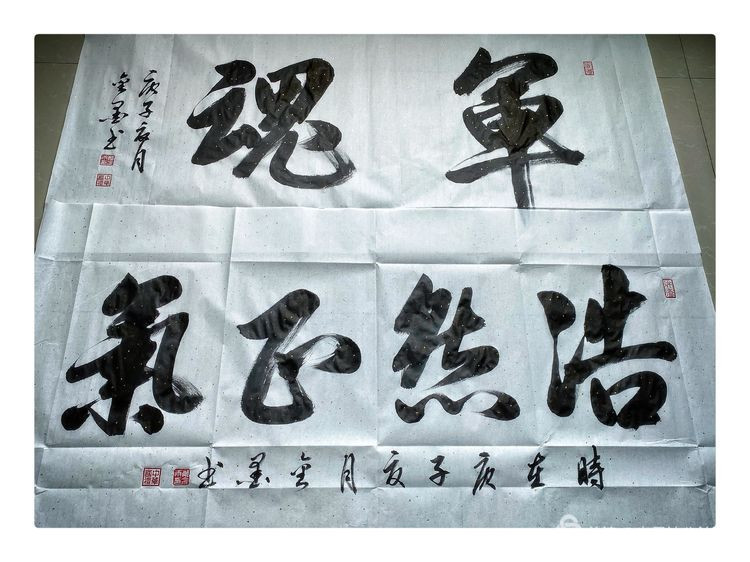 軍魂
庚子夏月
金墨书
浩然正氣
時在庚子夏月金墨书